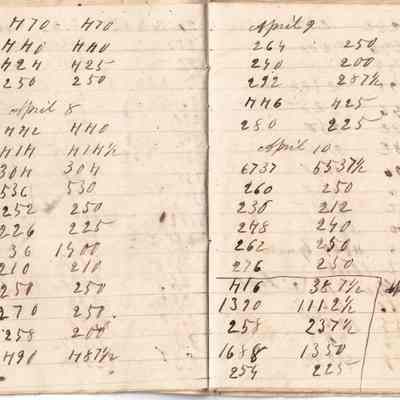 470 470
440 440
424 425
250 250
April 8
442 440
414 414½
304 304
536 530
252 250
226 225
36 1400
210 210
250 250
270 250
258 200
490 487½
April 9
264 250
240 200
292 287½
446 425
280 225
April 10
6737 6537½
260 250
230 212
248 240
262 250
276 250
416 387½
1390 1112½
258 237½
1688 1350
254 225